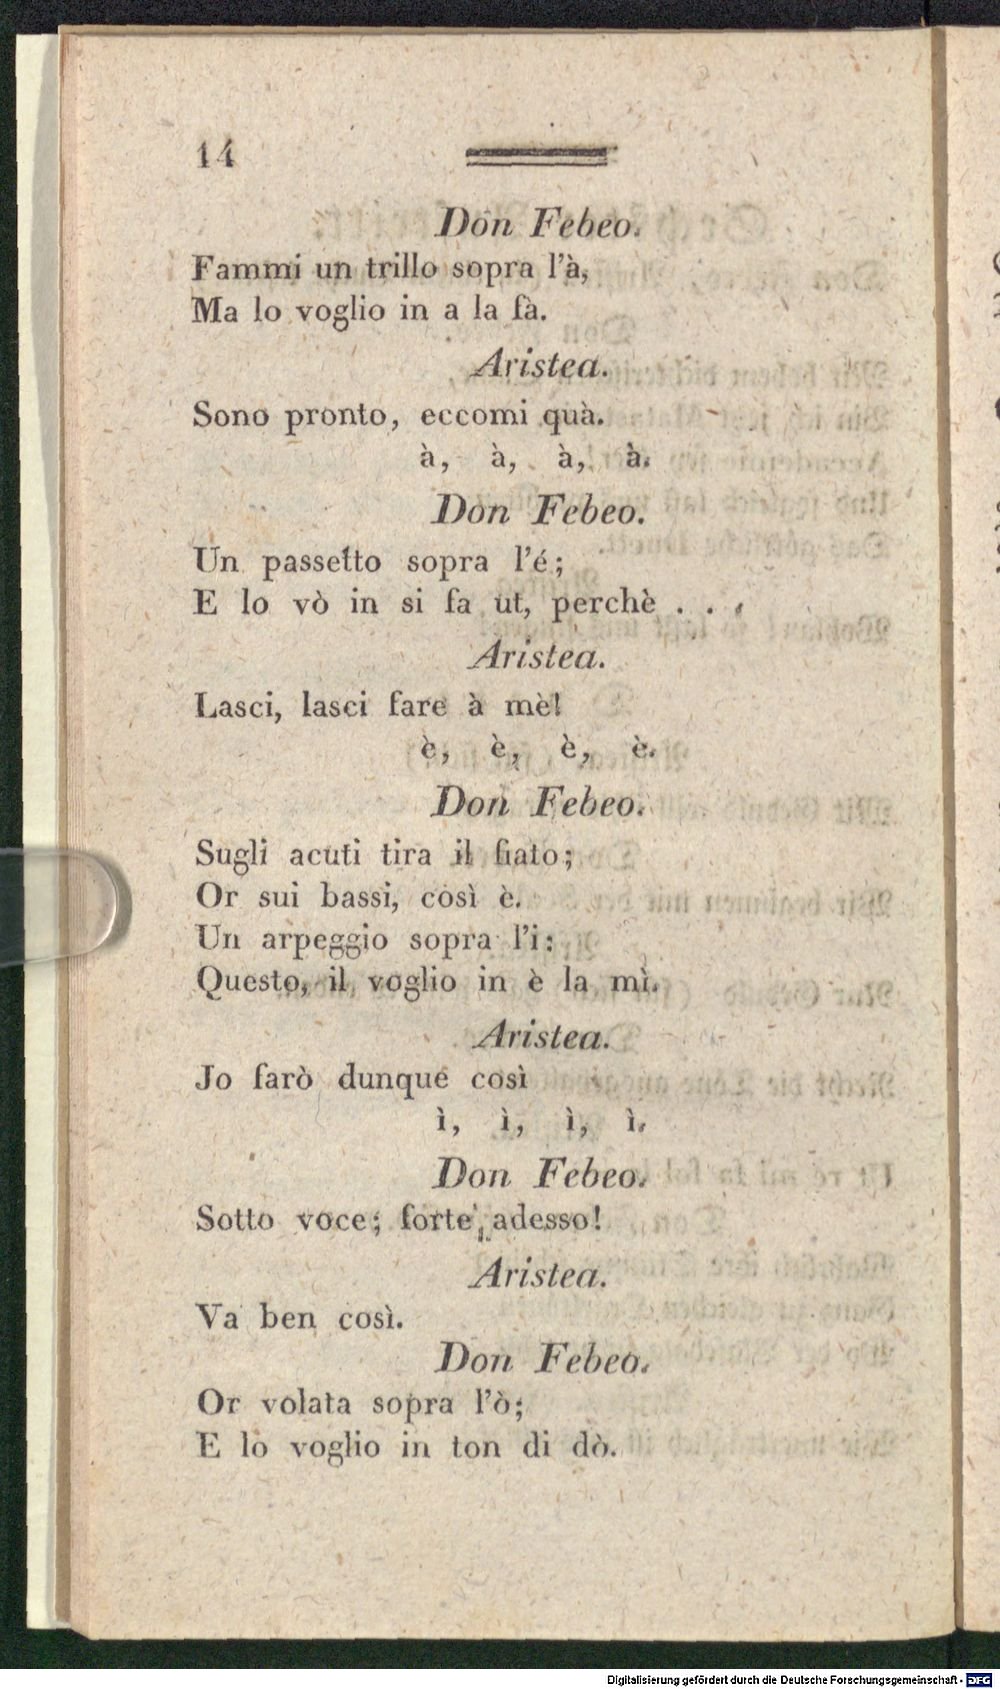 14
Don Febeo.
Fammi un trillo sopra l'à,
Ma lo voglio in a la fà.
Aristea.
Sono pronto, eccomi quà.
à, à, à, à.
Don Febeo.
Un passetto sopra l'é;
E lo vò in si fa ut, perchè . . .
Aristea.
Lasci, lasci fare à mè!
è, è, è, è.
Don Febeo.
Sugli acuti tira il fiato;
Or sui bassi, così è.
Un arpeggio sopra l'i:
Questo, il voglio in è la mì.
Aristea.
Jo farò dunque così
ì, ì, ì, ì.
Don Febeo.
Sotto voce; forte, adesso!
Aristea.
Va ben così.
Don Febeo.
Or volata sopra l'ò;
E lo voglio in ton di dò.
Digitalisierung gefördert durch die Deutsche Forschungsgemeinschaft - DFG